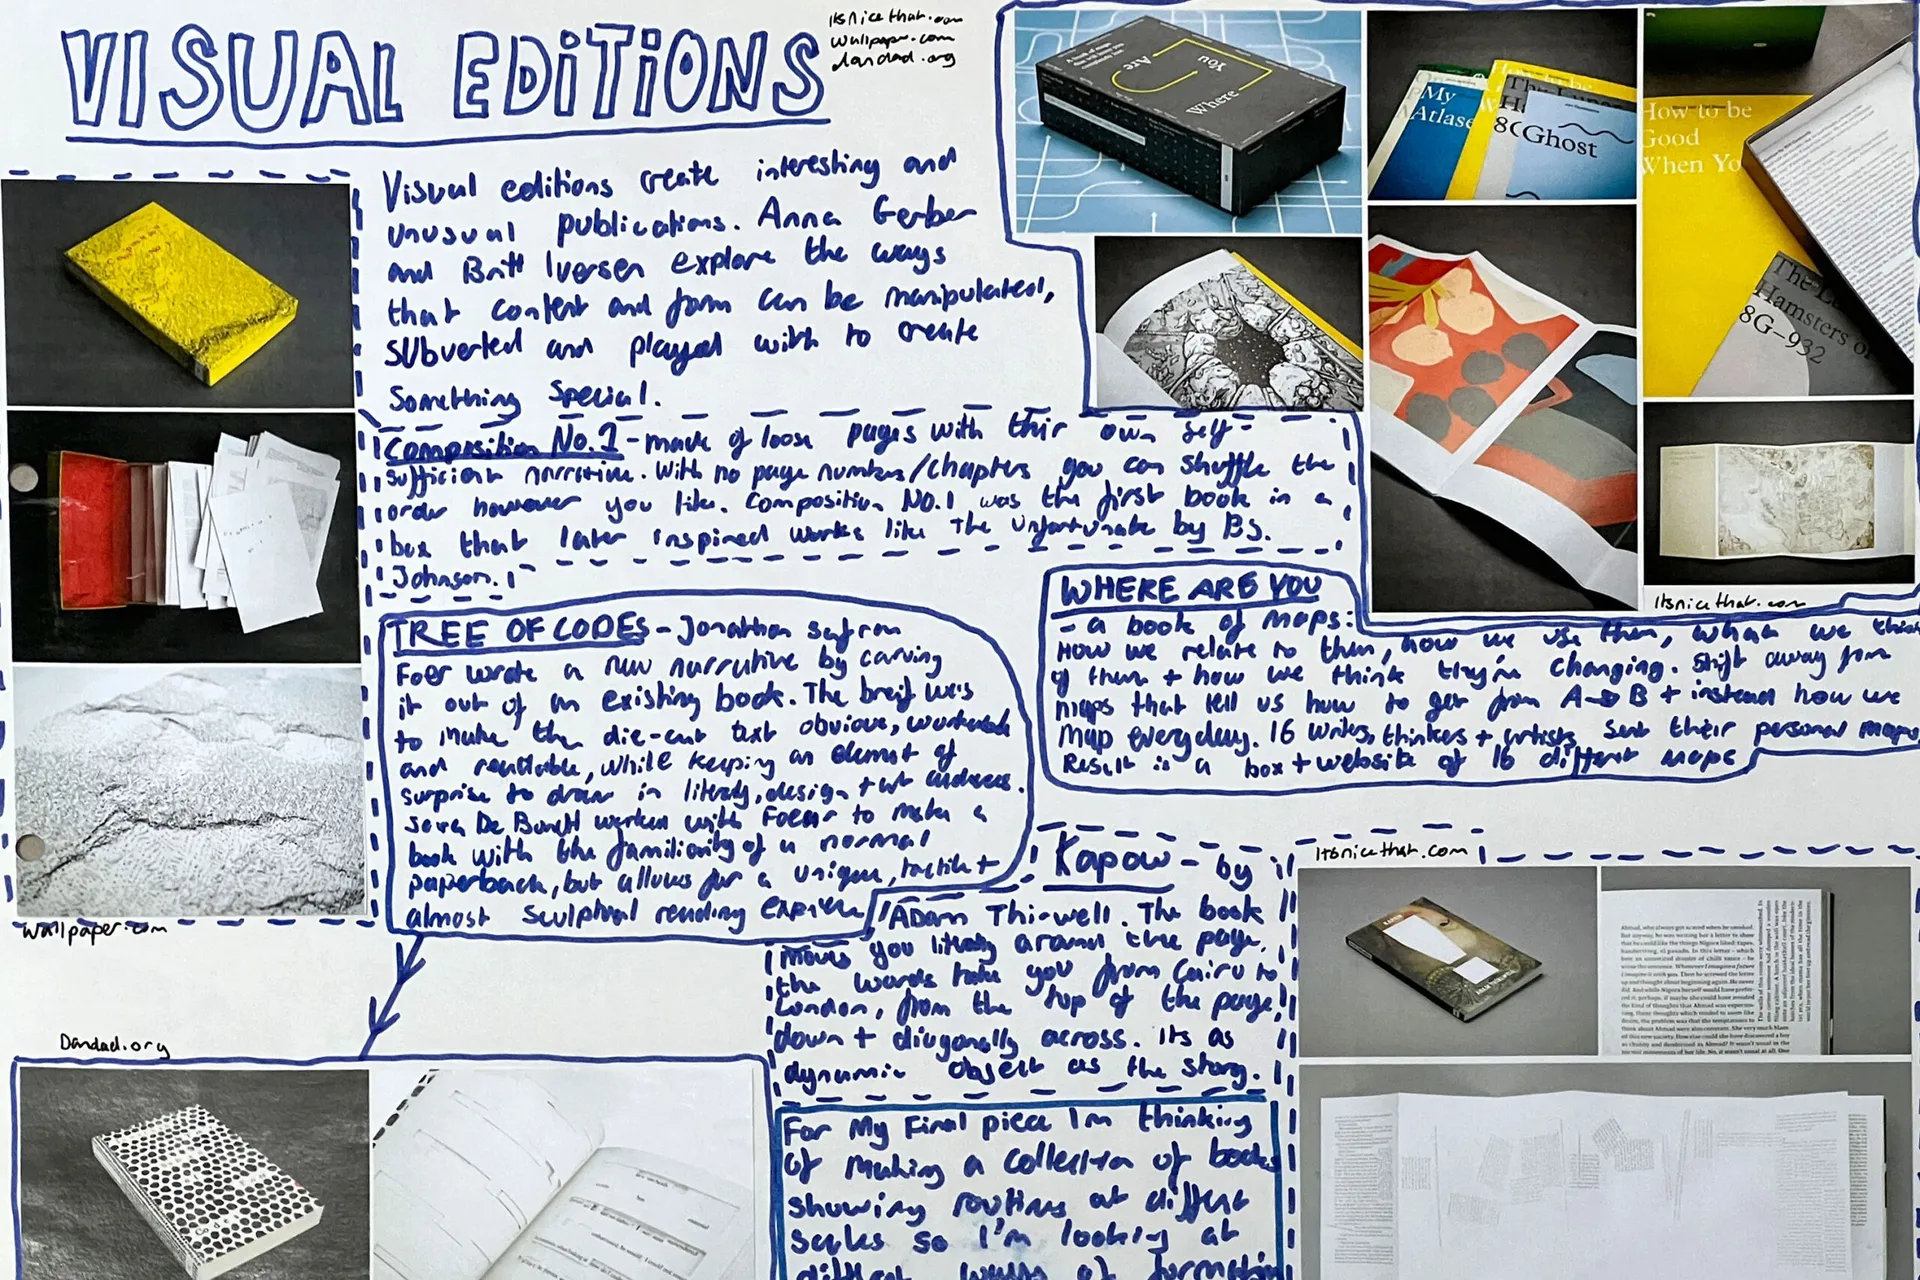 VISUAL EDITIONS
itsnicethat.com
wallpaper.com
dandad.org
Visual editions create interesting and
unusual publications. Anna Gerber
and Britt Iversen explore the ways
that content and form can be manipulated,
subverted and played with to create
something special.
Composition No.1 - made of loose pages with their own self-
sufficient narrative. With no page numbers/chapters you can shuffle the
order however you like. Composition NO.1 was the first book in a
box that later inspired works like The Unfortunate by BS.
Johnson.
TREE OF CODES - Jonathan safran
Foer wrote a new narrative by carving
it out of an existing book. The breif was
to make the die-cut text obvious,
and readable, while keeping an element of
surprise to draw in literary, design + art audiences.
Sara De Bondt worked with Foer to make a
book with the familiarity of a normal
paperback, but allows for a unique, tactile +
almost sculptural reading
WHERE ARE YOU
- a book of maps:
How we relate to them, how we use them, what we think
of them + how we think they're changing. Shift away from
maps that tell us how to get from A→B + instead how we
map everyday. 16 writers, thinkers + artists sent their personal maps
Result is a box + website of 16 different maps
Kapow - by
Adam Thirwell. The book
moves you literally around the page.
the words take you from Cairo to
London, from the top of the page,
down + diagonally across. its as
dynamic object as the story.
For My Final piece Im thinking
of making a collection of books
showing routines at different
scales so I'm looking at
different ways of formatting
Where
You
Are
My
Atlase
The Luna
H
8G
Ghost
How to be
Good
When Yo
The L
Hamsters of
8G-932
itsnicethat.com
wallpaper.com
Dandad.org
itsnicethat.com